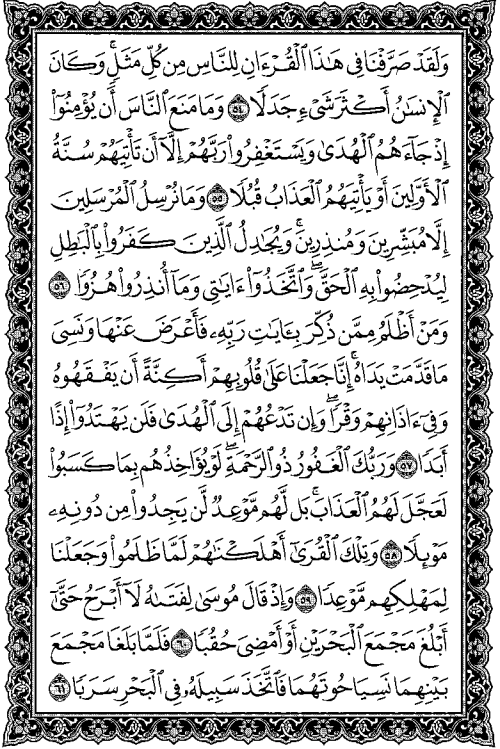 وَلَقَدْ صَرَّفْنَا فِى هَـٰذَا ٱلْقُرْءَانِ لِلنَّاسِ مِن كُلِّ مَثَلٍ ۚ وَكَانَ
ٱلْإِنسَـٰنُ أَكْثَرَ شَىْءٍ جَدَلًا ٥٤ وَمَا مَنَعَ ٱلنَّاسَ أَن يُؤْمِنُوٓا۟
إِذْ جَآءَهُمُ ٱلْهُدَىٰ وَيَسْتَغْفِرُوا۟ رَبَّهُمْ إِلَّآ أَن تَأْتِيَهُمْ سُنَّةُ
ٱلْأَوَّلِينَ أَوْ يَأْتِيَهُمُ ٱلْعَذَابُ قُبُلًا ٥٥ وَمَا نُرْسِلُ ٱلْمُرْسَلِينَ
إِلَّا مُبَشِّرِينَ وَمُنذِرِينَ ۚ وَيُجَـٰدِلُ ٱلَّذِينَ كَفَرُوا۟ بِٱلْبَـٰطِلِ
لِيُدْحِضُوا۟ بِهِ ٱلْحَقَّ ۖ وَٱتَّخَذُوٓا۟ ءَايَـٰتِى وَمَآ أُنذِرُوا۟ هُزُوًا ٥٦
وَمَنْ أَظْلَمُ مِمَّن ذُكِّرَ بِـَٔايَـٰتِ رَبِّهِۦ فَأَعْرَضَ عَنْهَا وَنَسِىَ
مَا قَدَّمَتْ يَدَاهُ ۚ إِنَّا جَعَلْنَا عَلَىٰ قُلُوبِهِمْ أَكِنَّةً أَن يَفْقَهُوهُ
وَفِىٓ ءَاذَانِهِمْ وَقْرًا ۖ وَإِن تَدْعُهُمْ إِلَى ٱلْهُدَىٰ فَلَن يَهْتَدُوٓا۟ إِذًا
أَبَدًا ٥٧ وَرَبُّكَ ٱلْغَفُورُ ذُو ٱلرَّحْمَةِ ۖ لَوْ يُؤَاخِذُهُم بِمَا كَسَبُوا۟
لَعَجَّلَ لَهُمُ ٱلْعَذَابَ ۚ بَل لَّهُم مَّوْعِدٌ لَّن يَجِدُوا۟ مِن دُونِهِۦ
مَوْئِلًا ٥٨ وَتِلْكَ ٱلْقُرَىٰٓ أَهْلَكْنَـٰهُمْ لَمَّا ظَلَمُوا۟ وَجَعَلْنَا
لِمَهْلِكِهِم مَّوْعِدًا ٥٩ وَإِذْ قَالَ مُوسَىٰ لِفَتَىٰهُ لَآ أَبْرَحُ حَتَّىٰٓ
أَبْلُغَ مَجْمَعَ ٱلْبَحْرَيْنِ أَوْ أَمْضِىَ حُقُبًا ٦٠ فَلَمَّا بَلَغَا مَجْمَعَ
بَيْنِهِمَا نَسِيَا حُوتَهُمَا فَٱتَّخَذَ سَبِيلَهُۥ فِى ٱلْبَحْرِ سَرَبًا ٦١